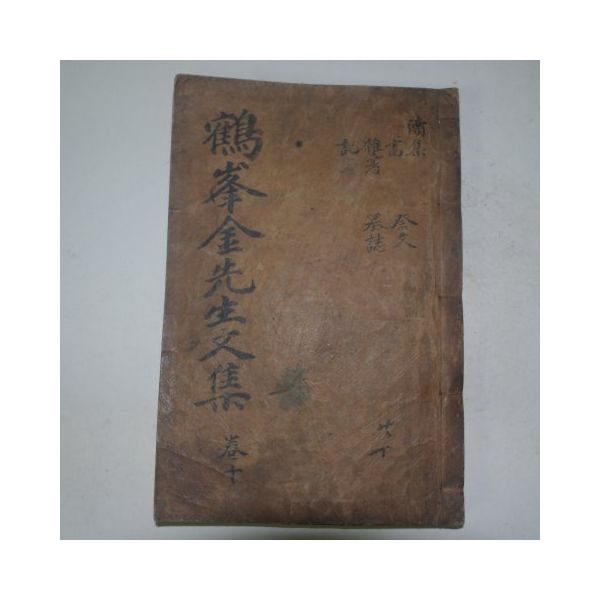 續集
書 祭文
雜著 墓誌
記
鶴峯金先生文集
卷十
共十